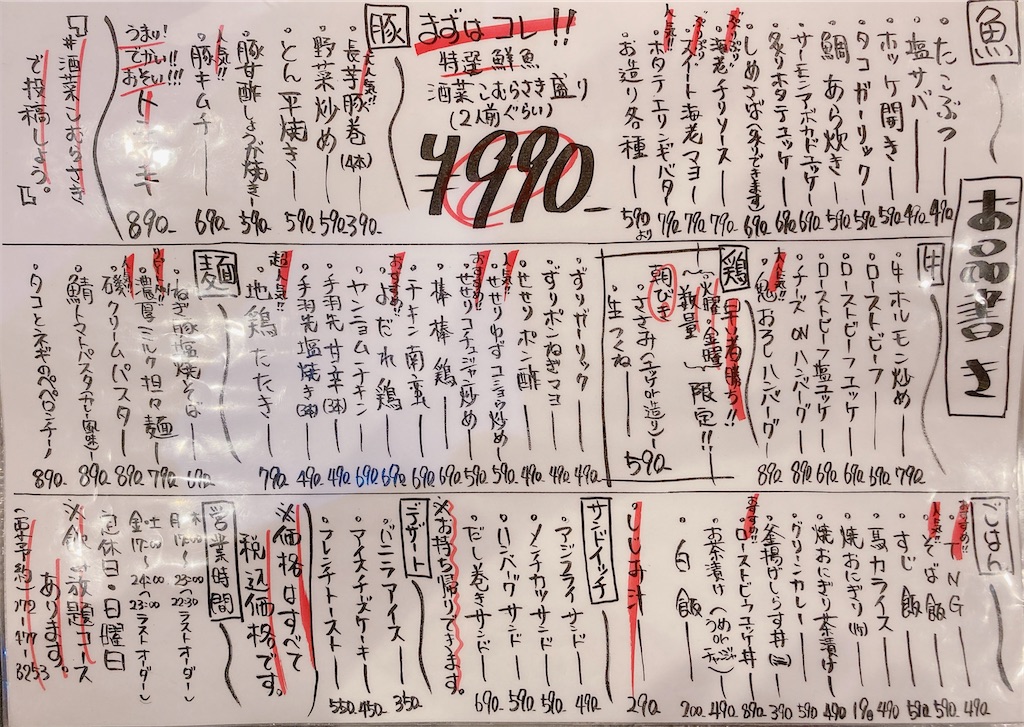 お品書き
魚
・たこぶつ 490-
・塩サバ 490-
・ホッケ開き 590-
・タコガーリック 590-
・鯛あら炊き 590-
・サーモンアボカドユッケ 690-
・炙りホタテユッケ 690-
・しめさば(炙りできます) 690-
ぷりぷり
・海老チリソース 790-
・スイート海老マヨ 790-
人気!!
・ホタテエリンギバター 790-
・お造り各種 590より
まずはコレ!!
特選鮮魚
酒菜こむらさき盛り
(2人前ぐらい)
¥4990-
豚
大人気!!
・長芋豚巻(4本) 390-
・野菜炒め 590-
・とん平焼き 590-
・豚甘酢しょうが焼き 590-
人気!!
・豚キムチ 690-
うまい!
でかい!!
おそい!!!
トンテキ 890-
『#酒菜しむらさき
で投稿しよう。』
牛
・牛ホルモン炒め 790-
・ローストビーフ 690-
・ローストビーフユッケ 690-
・ローストビーフ塩ユッケ 690-
・チーズONハンバーグ 890-
大人気!!
・鬼おろしハンバーグ 890-
鶏
早い者勝ち!!
(火曜・金曜)
数量限定!!
朝びき
・ささみ(ユッケor造り) 590-
・生つくね
・ずりガーリック 490-
・ずりポンねぎマヨ 490-
・せせりポン酢 490-
人気!!
・せせりゆずコショウ炒め 590-
おすすめ!!
・せせりコチュジャン炒め 590-
・棒棒鶏 690-
・チキン南蛮 690-
おすすめ!!
・よだれ鶏 690-
・ヤンニョムチキン 690-
・手羽先甘辛(3本) 490-
・手羽先塩焼き(3本) 490-
超人気!!
・地鶏たたき 790-
麺
・ねぎ豚塩焼そば 690-
・濃厚ミルク担々麺 790-
人気!!
・磯クリームパスタ 890-
・鯖トマトパスタ(カレー風味) 890-
・タコとネギのペペロンチーノ 890-
ごはん
おすすめ!!
・TNG 490-
人気!!
・そば飯 590-
・すじ飯 590-
・馬カライス 490-
・焼おにぎり(1ケ) 190-
・焼おにぎり茶漬け 490-
・グリーンカレー 590-
・釜揚げしらす丼 390-
おすすめ!!
・ローストビーフユッケ丼 890-
・お茶漬け(うめorチャンジャ) 490-
・白飯 200-
・しじみ汁 290-
サンドイッチ
・アジフライサンド 490-
・メンチカツサンド 590-
・ハンバーグサンド 590-
・だし巻きサンド 690-
※お持ち帰りできます。
デザート
・バニラアイス 350-
・アイスチーズケーキ 450-
・フレンチトースト 550-
※価格はすべて
税込価格です。
営業時間
月-木
17:00〜23:00
(ラストオーダー22:30)
金・土
17:00〜24:00
(ラストオーダー23:00)
定休日・日曜日
※飲み放題コース
あります。
(要予約)